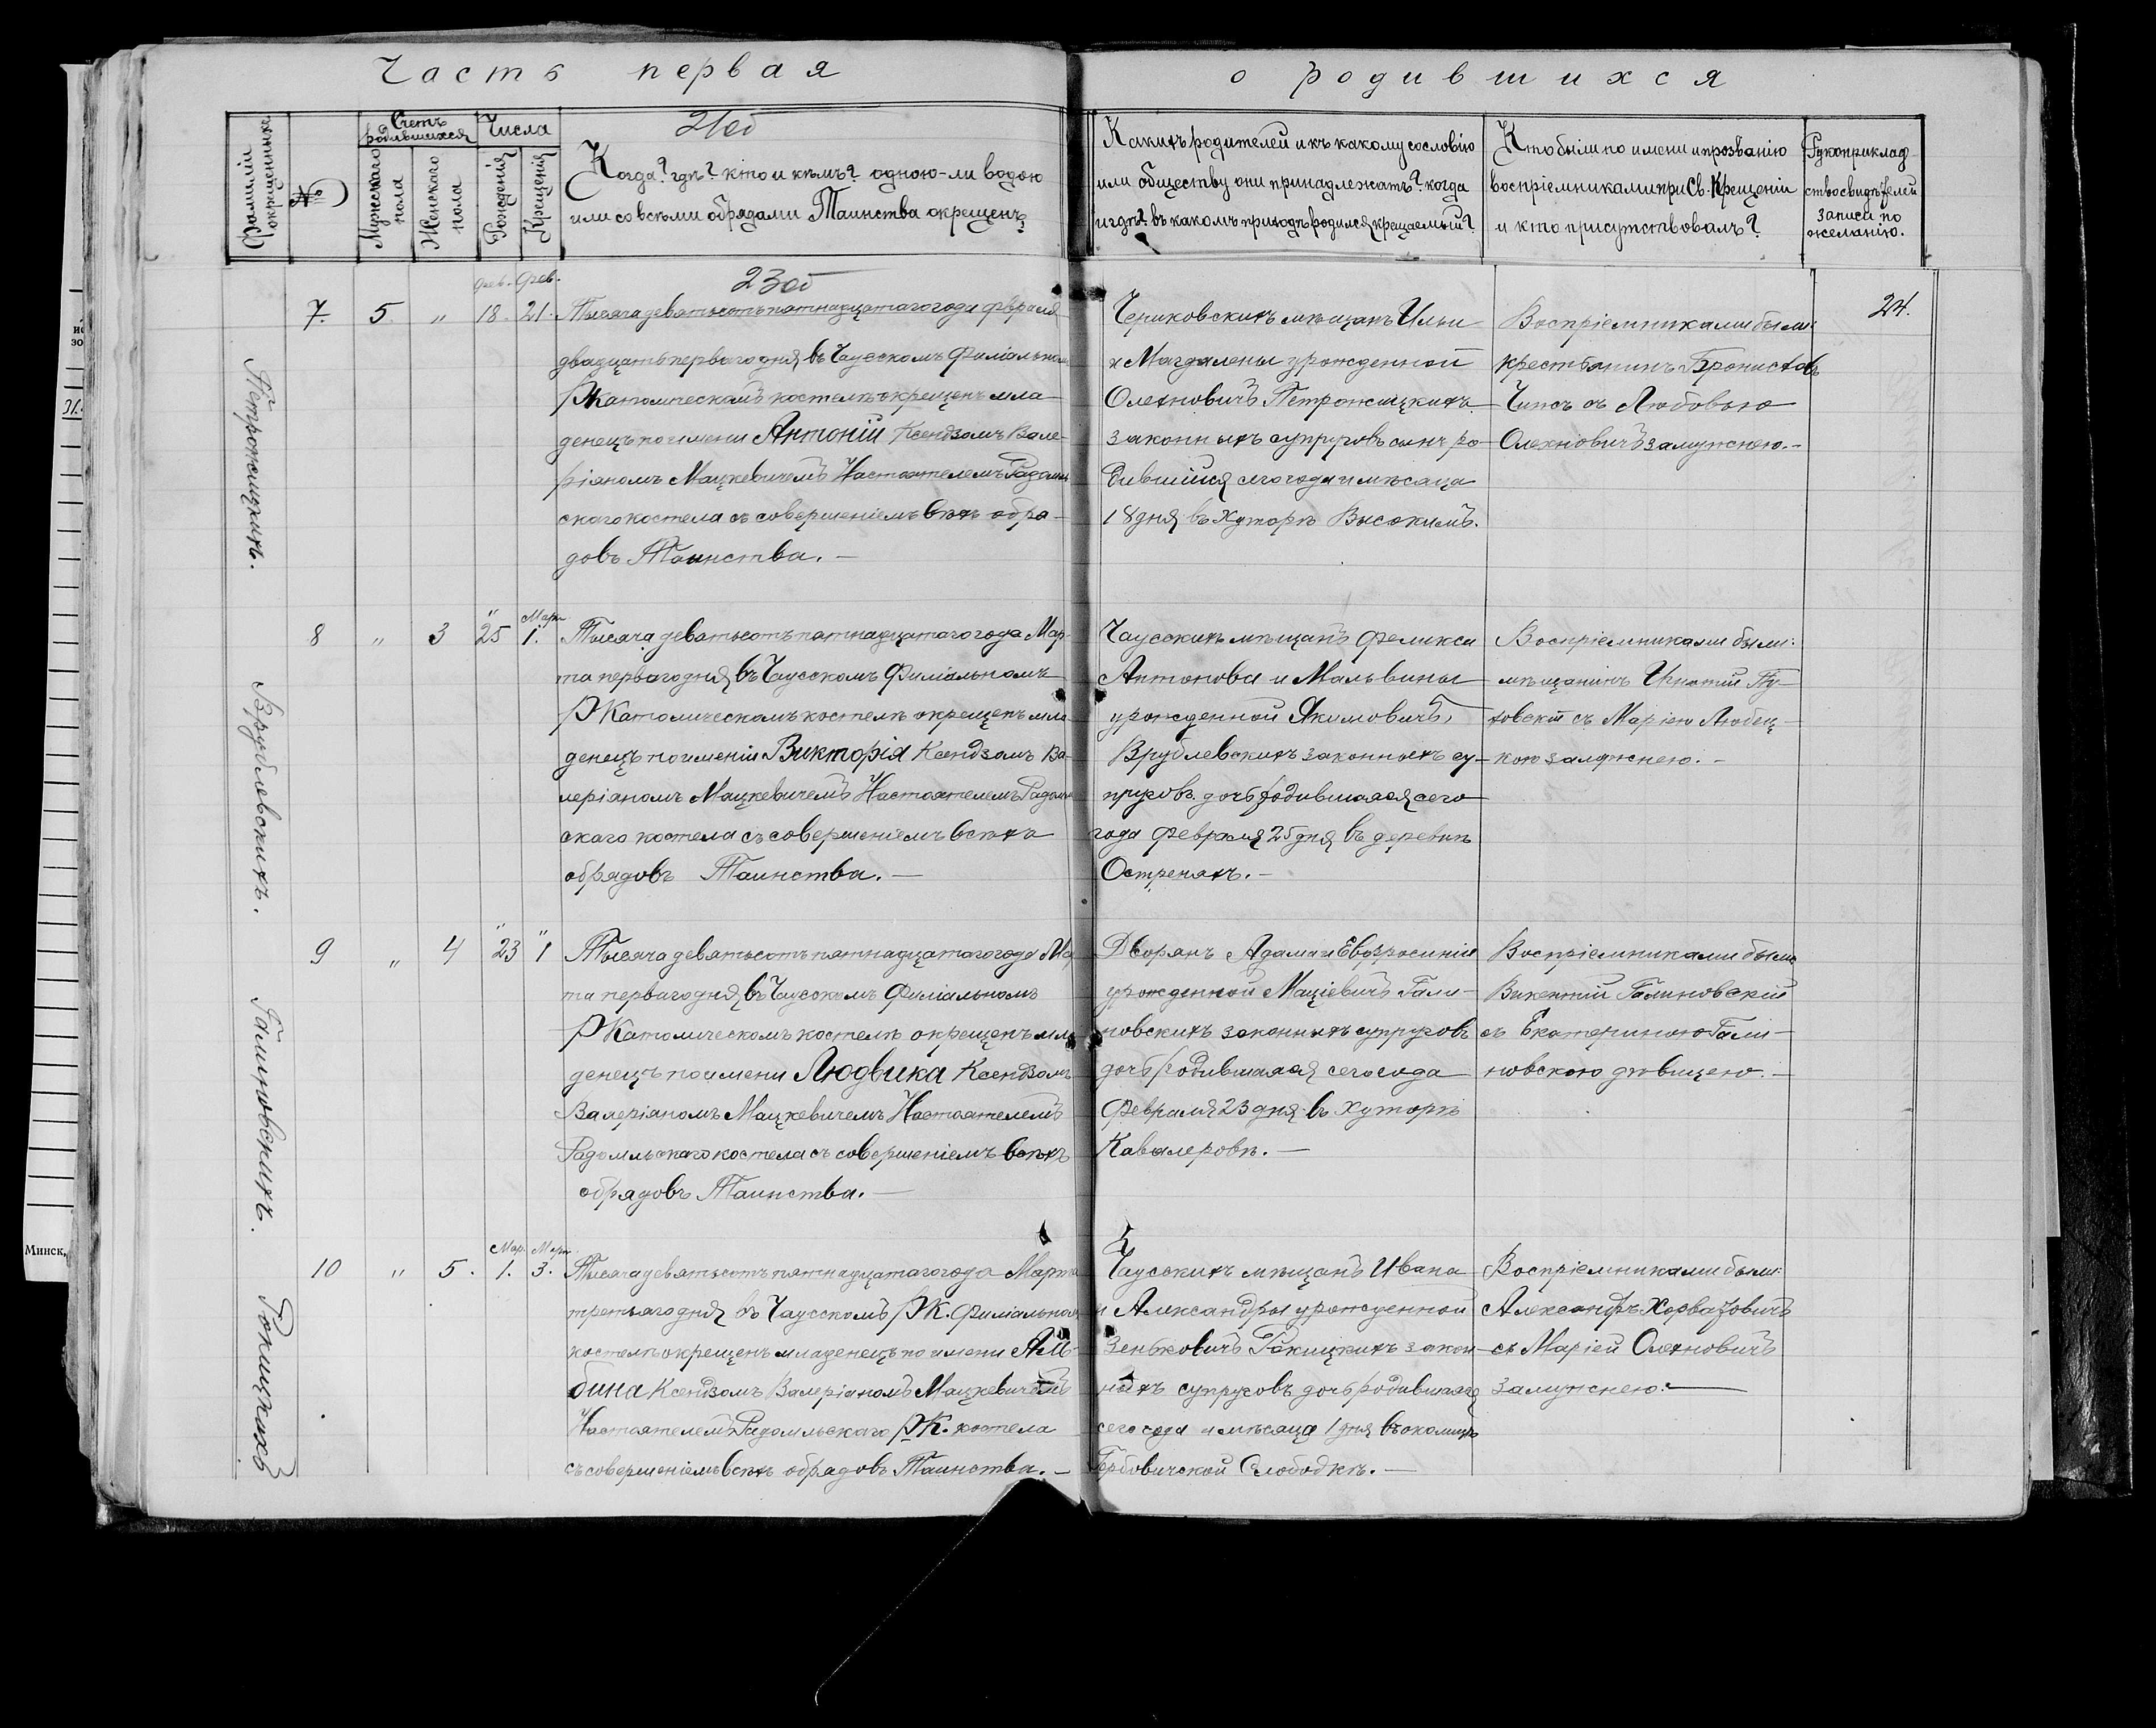 Часть первая
о родившихся
Фамилiи
окрещенныхъ
№
Счетъ
родившихся
Мужскаго
пола
Женскаго
пола
Числа
Рожденiя
Крещенiя
Когда? гдѣ? кто и кѣмъ? одною-ли водою
или со всѣми обрядами Таинства окрещенъ
Какихъ родителей и къ какому сословiю
или обществу они принадлежатъ? когда
и гдѣ? въ какомъ приходѣ родился крещаемый?
Кто были по имени и прозванiю
воспрiемниками при Св. Крещенiи
и кто присутствовалъ?
Рукоприклад
ство свидѣтелей
записи по
желанiю.
24.
Петрожицкихъ.
7. 5 " Фев. 18. Фев. 21.
Тысяча девятьсотъ пятнадцатаго года февраля
двадцать перваго дня въ Чаусскомъ Филiальном
РКатолическомъ костелѣ окрещенъ мла-
денецъ по имени Антонiй Ксендзомъ Вале-
рiаномъ Мацкевичемъ Настоятелемъ Радомль
скаго костела съ совершенiемъ всѣхъ обря-
довъ Таинства. —
Чериковскихъ мѣщанъ Ильи
и Магдалены урожденной
Олехновичъ Петрожицкихъ
законныхъ супруговъ сынъ ро-
дившiйся сего года и мѣсяца
18 дня въ Хуторѣ Высокимъ.
Воспрiемниками были:
крестьянинъ Брониславъ
съ Любовью
Олехновичъ замужнею. -
Врублевскихъ.
8 " 3 " 25 Мар. 1.
Тысяча девятьсотъ пятнадцатаго года Мар-
та перваго дня въ Чаусскомъ Филiальномъ
РКатолическомъ костелѣ окрещенъ мла
денецъ по имени Викторiя Ксендзомъ Ва-
лерiаномъ Мацкевичемъ Настоятелемъ Радомль
скаго костела съ совершенiемъ всѣхъ
обрядовъ Таинства. —
Чаусскихъ мѣщанъ Феликса
Антонова и Мальвины
урожденной Якимовичъ,
Врублевскихъ законныхъ су-
пруговъ дочь родившаяся сего
года февраля 25 дня въ деревнѣ
Остреняхъ. -
Воспрiемниками были:
мѣщанинъ Игнатiй
съ Марiею Любец-
кою замужнею. -
Галиновскихъ.
9 " 4 " 23 " 1
Тысяча девятьсотъ пятнадцатаго года Мар
та перваго дня въ Чаусскомъ Филiальномъ
РКатолическомъ костелѣ окрещенъ мла
денецъ по имени Людвика Ксендзомъ
Валерiаномъ Мацкевичемъ Настоятелемъ
Радомльскаго костела съ совершенiемъ всѣхъ
обрядовъ Таинства. —
Дворянъ Адама и Евфросинiи
урожденной Мацiевичъ Гали-
новскихъ законныхъ супруговъ
дочь родившаяся сего года
Февраля 23 дня въ Хуторѣ
Кавалеровѣ. —
Воспрiемниками были
Викентiй Галиновскiй
съ Екатериною Гали-
новскою дѣвицею. -
Ракицкихъ
10 " 5. Мар. 1. Мар. 3.
Тысяча девятьсотъ пятнадцатаго года Марта
третьяго дня въ Чаусскомъ РК. Филiальном
костелѣ окрещенъ младенецъ по имени Аль-
бина Ксендзомъ Валерiаномъ Мацкевичемъ
Настоятелемъ Радомльскаго РК. костела
съ совершенiемъ всѣхъ обрядовъ Таинства. —
Чаусскихъ мѣщанъ Ивана
и Александры урожденной
Зеньковичъ Ракицкихъ закон-
ныхъ супруговъ дочь родившаяся
сего года и мѣсяца 1 дня въ околицѣ
Горбовичской Слободкѣ. —
Воспрiемниками были:
Александръ
съ Марiей Олехновичъ
замужнею. —
Минск,